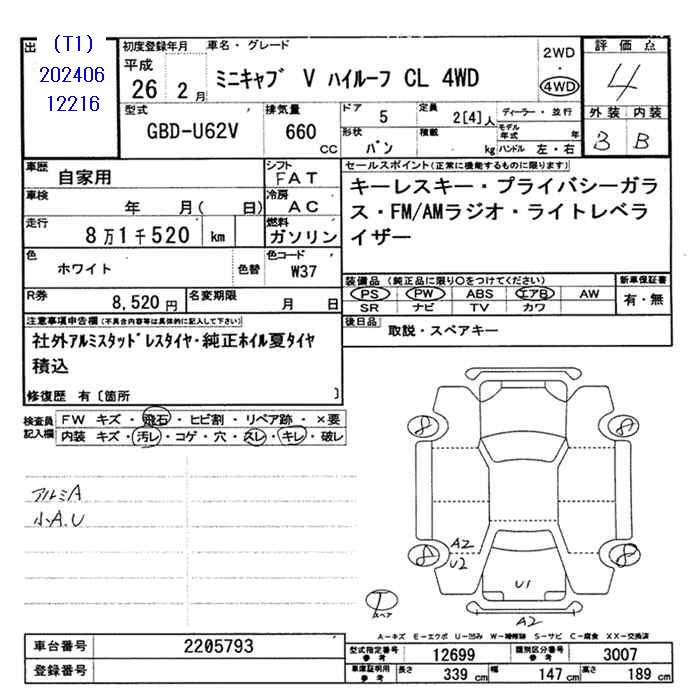 出
(T1)
202406
12216
初度登録年月
平成
26 2 月
車名・グレード
ミニキャブ V ハイルーフ CL 4WD
2WD
・
4WD
評価点
4
外装 内装
3 B
型式
GBD-U62V
排気量
660
CC
ドア
5
定員
2[4]人
ディーラー・並行
形状
バン
積載
kg
モデル年式
年
ハンドル 左・右
車歴
自家用
シフト
FAT
車検
年 月( 日)
冷房
AC
走行
8万1千520 km
燃料
ガソリン
色
ホワイト
色替
色コード
W37
R券
8,520円
名変期限
月 日
セールスポイント(正常に機能するものに限ります)
キーレスキー・プライバシーガラ
ス・FM/AMラジオ・ライトレベラ
イザー
装備品(純正品に限り○をつけてください)
PS PW ABS エアB AW
SR ナビ TV カワ
新車保証書
有・無
後日品
取説・スペアキー
注意事項申告欄(不具合内容等は具体的に記入して下さい)
社外アルミスタッドレスタイヤ・純正ホイル夏タイヤ
積込
修復歴 有〔箇所 〕
検査員
記入欄
FW キズ・飛石・ヒビ割・リペア跡・×要
内装 キズ・汚レ・コゲ・穴・スレ・キレ・破レ
アルミA
小A.U
8
8
8
8
A2
U2
U1
A2
T
スペア
A-キズ E-エクボ U-凹み W-補修跡 S-サビ C-腐食 XX-交換済
車台番号
2205793
登録番号
型式指定番号
参考
12699
類別区分番号
参考
3007
車庫証明用
参考
長さ
339 cm
幅
147 cm
高さ
189 cm